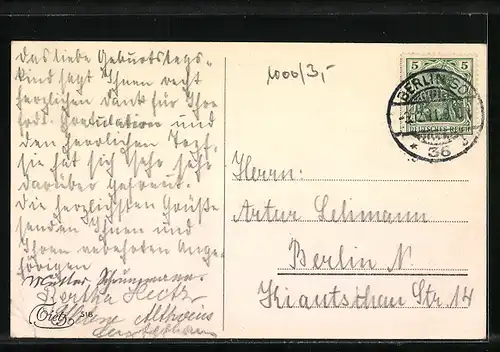 Das liebe Geburtstags-
kind sagt Ihnen recht
herzlichen Dank für Ihre
Gratulation und
den herrlichen Text,
sie hat sich sehr sehr
darüber gefreut.
Die herzlichsten Grüße
senden Ihnen und
Ihren verehrten Ange-
hörigen
Mutter
Bertha
318
1000/3,-
5 5
DEUTSCHES REICH
BERLIN SO
* 36
Herrn:
Artur Lehmann
Berlin N.
Kiautschau Str. 14